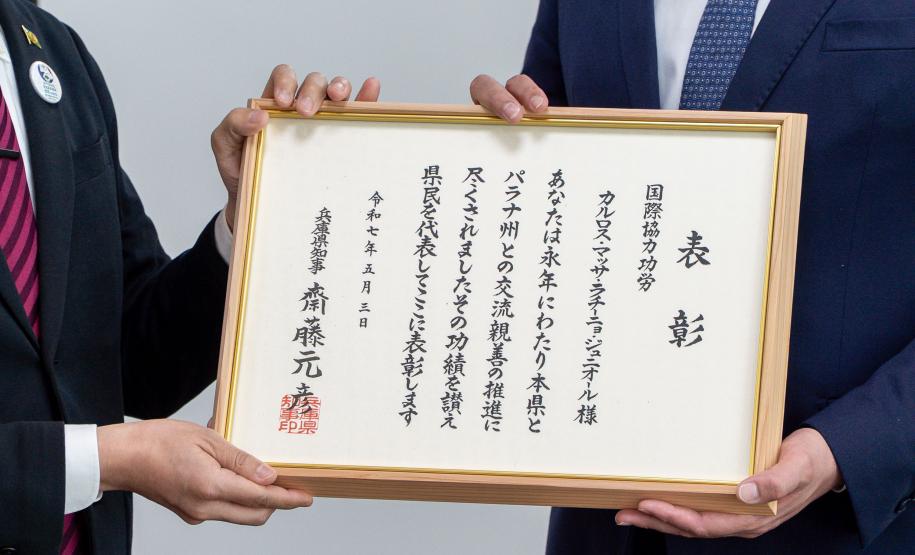 表彰
国際協力功労
カルロス・マッサ・ラチーニョ・ジュニオール様
あなたは永年にわたり本県と
パラナ州との交流親善の推進に
尽くされましたその功績を讃え
県民を代表してここに表彰します
令和七年五月三日
兵庫県知事 齋藤元彦
兵庫県知事印